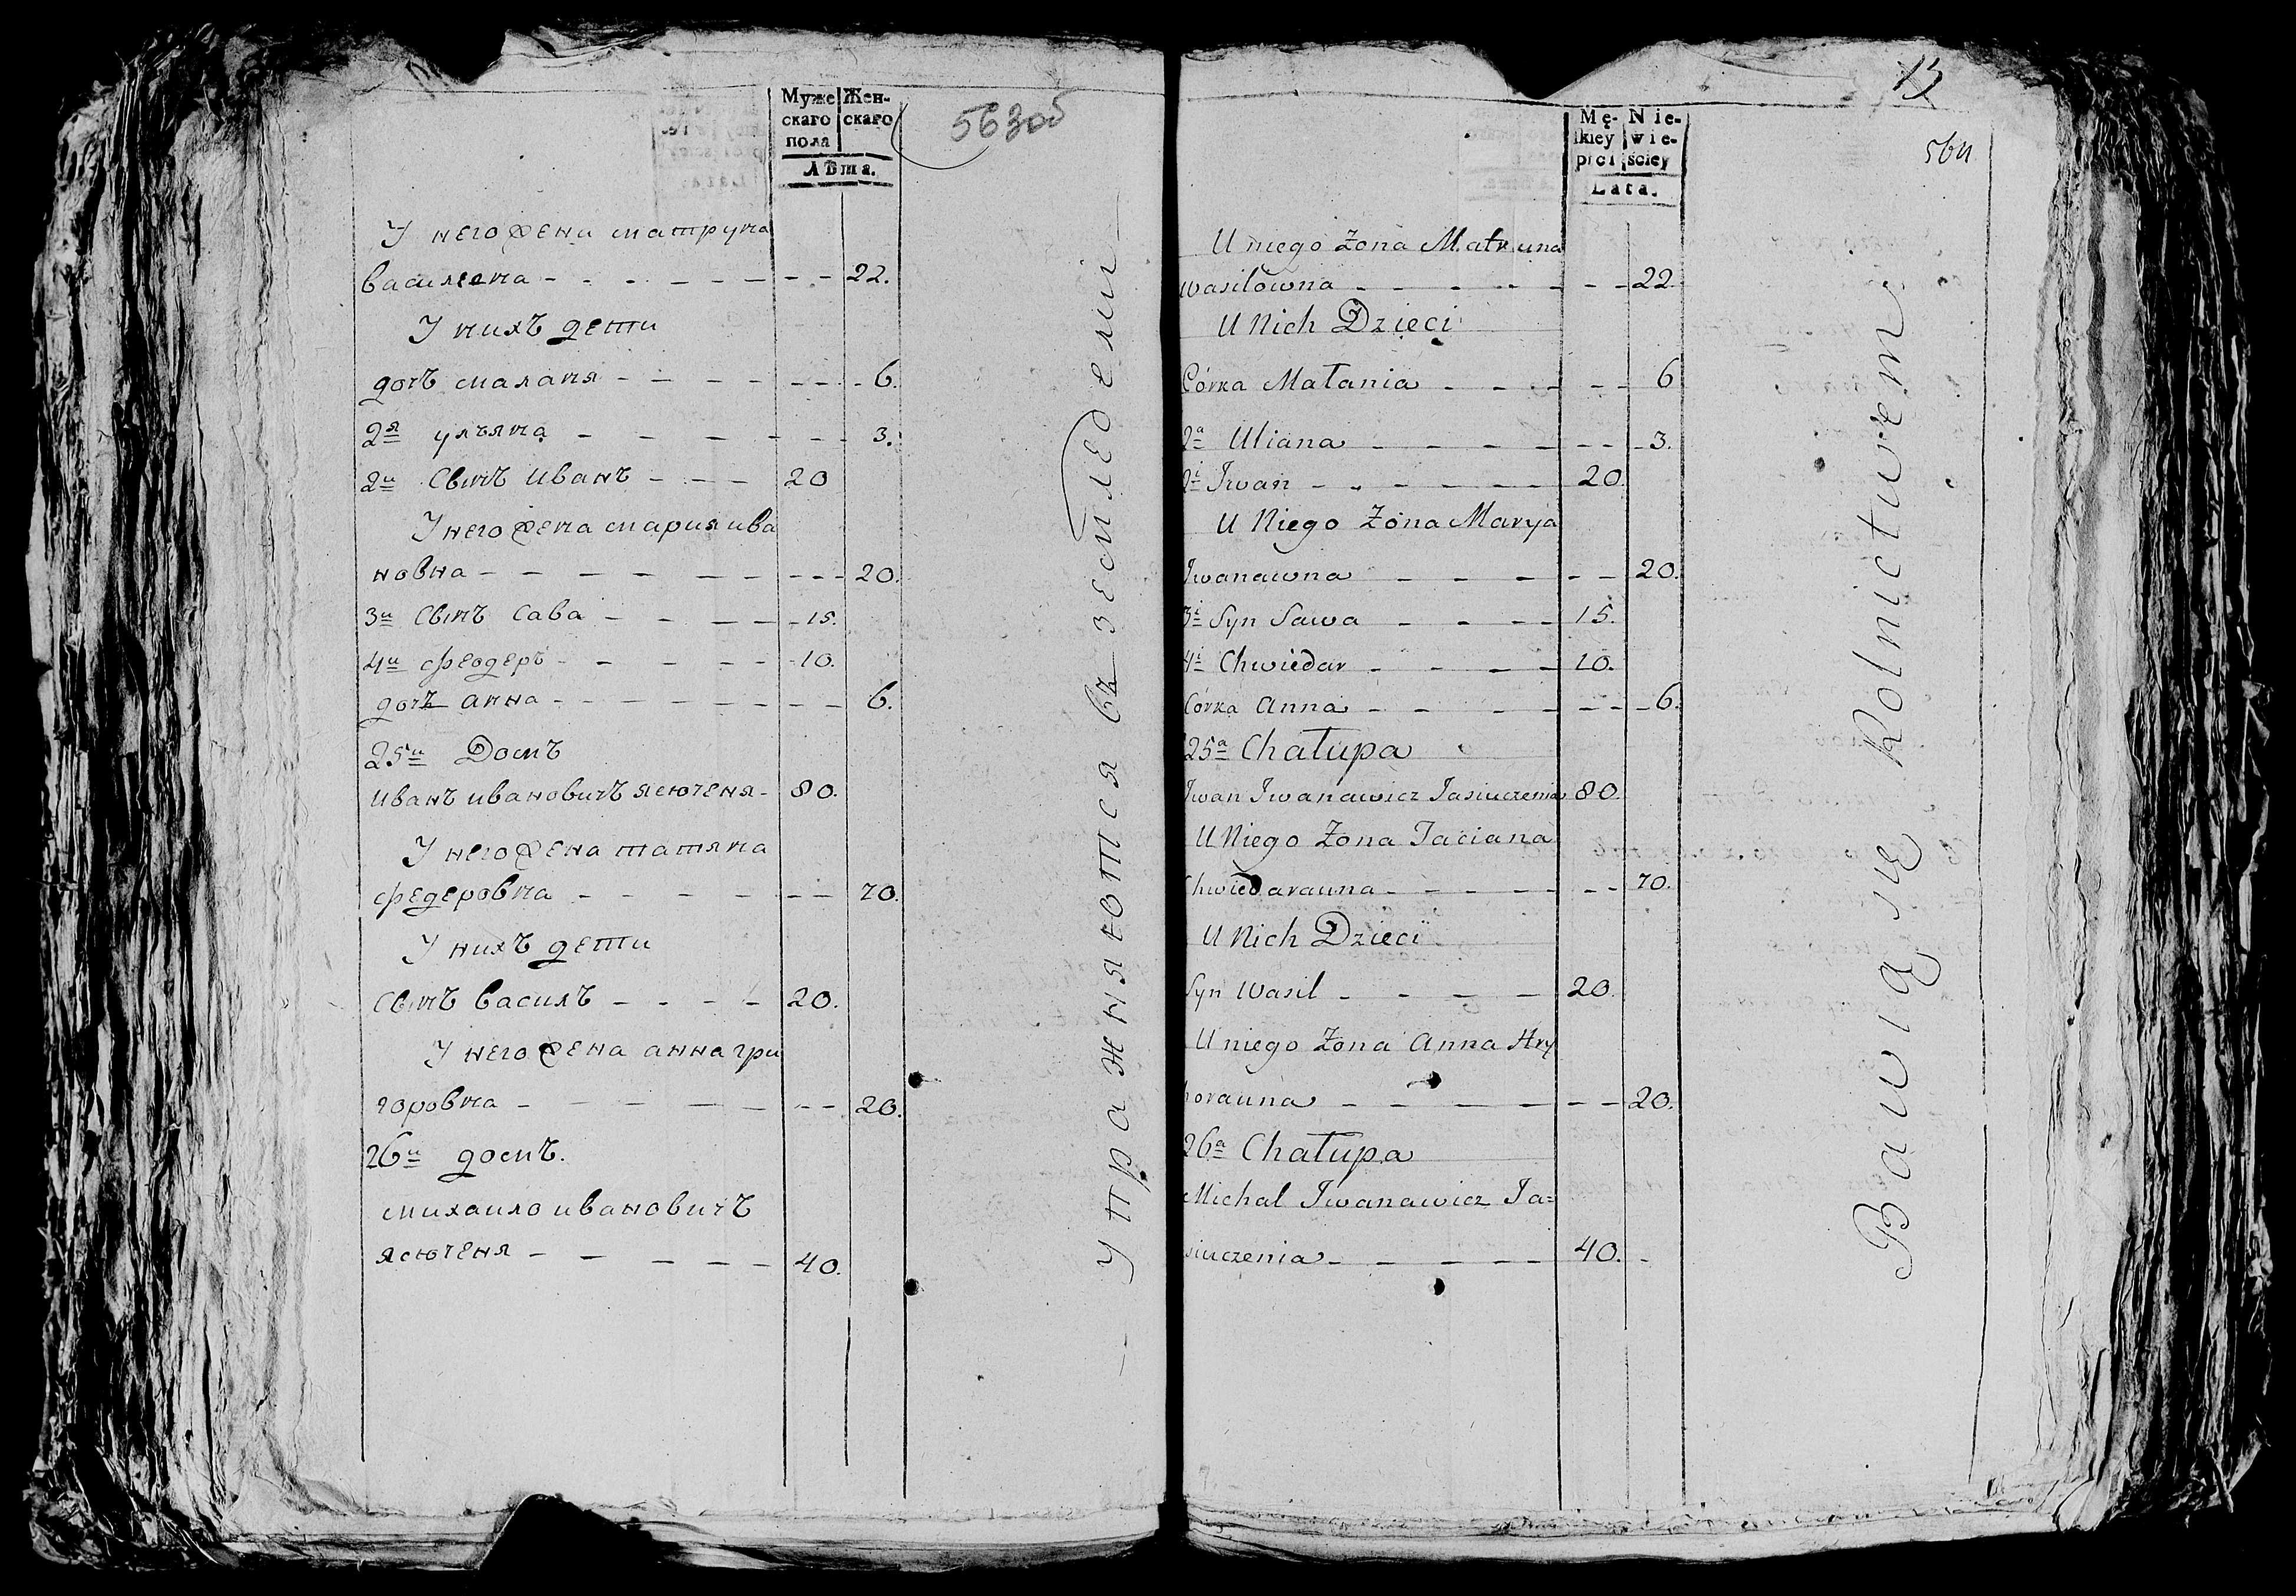 Муже Жен-
скаго скаго
пола
Лѣта.
563 об
У него жена матруна
василевна - - - - - - - - 22.
У нихъ дети
дочъ маланя - - - - - - - - 6.
2я уляна - - - - - - - 3.
2й Сынъ иванъ - - - 20
У него жена мария ива
новна - - - - - - - - - 20.
3й Сынъ Сава - - - - - 15.
4й феодеръ - - - - - - 10.
дочъ анна - - - - - - - - 6.
25й Домъ
иванъ ивановичъ ясюченя - 80.
У него жена татяна
федеровна - - - - - - - 70.
У нихъ дети
Сынъ василъ - - - - 20.
У него жена анна гри
горовна - - - - - - - 20.
26й домъ.
михаило ивановичъ
ясюченя - - - - - 40.
упражняются въ земледелии
13
564
Mę- Nie-
skiey wie-
płci ściey
Lata.
U niego Zona Matruna
wasilowna - - - - - - - 22.
U Nich Dzieci
Córka Małania - - - - - - 6
2a Uliana - - - - - - - - 3.
2i Jwan - - - - - - 20.
U Niego Zona Marya
Jwanawna - - - - - - 20.
3i Syn Sawa - - - - 15.
4i Chwiedar - - - - - 10.
Córka Anna - - - - - - - 6.
25a Chałupa
Jwan Jwanawicz Jasiuczenia 80.
U Niego Zona Taciana
Chwiedarauna - - - - - - 70.
U Nich Dzieci
Syn Wasil - - - - - 20.
U niego Zona Anna Hry
horauna - - - - - - - 20.
26a Chałupa
Michal Jwanawicz Ja=
siuczenia - - - - - - 40. -
Bawią się Rolnictwem